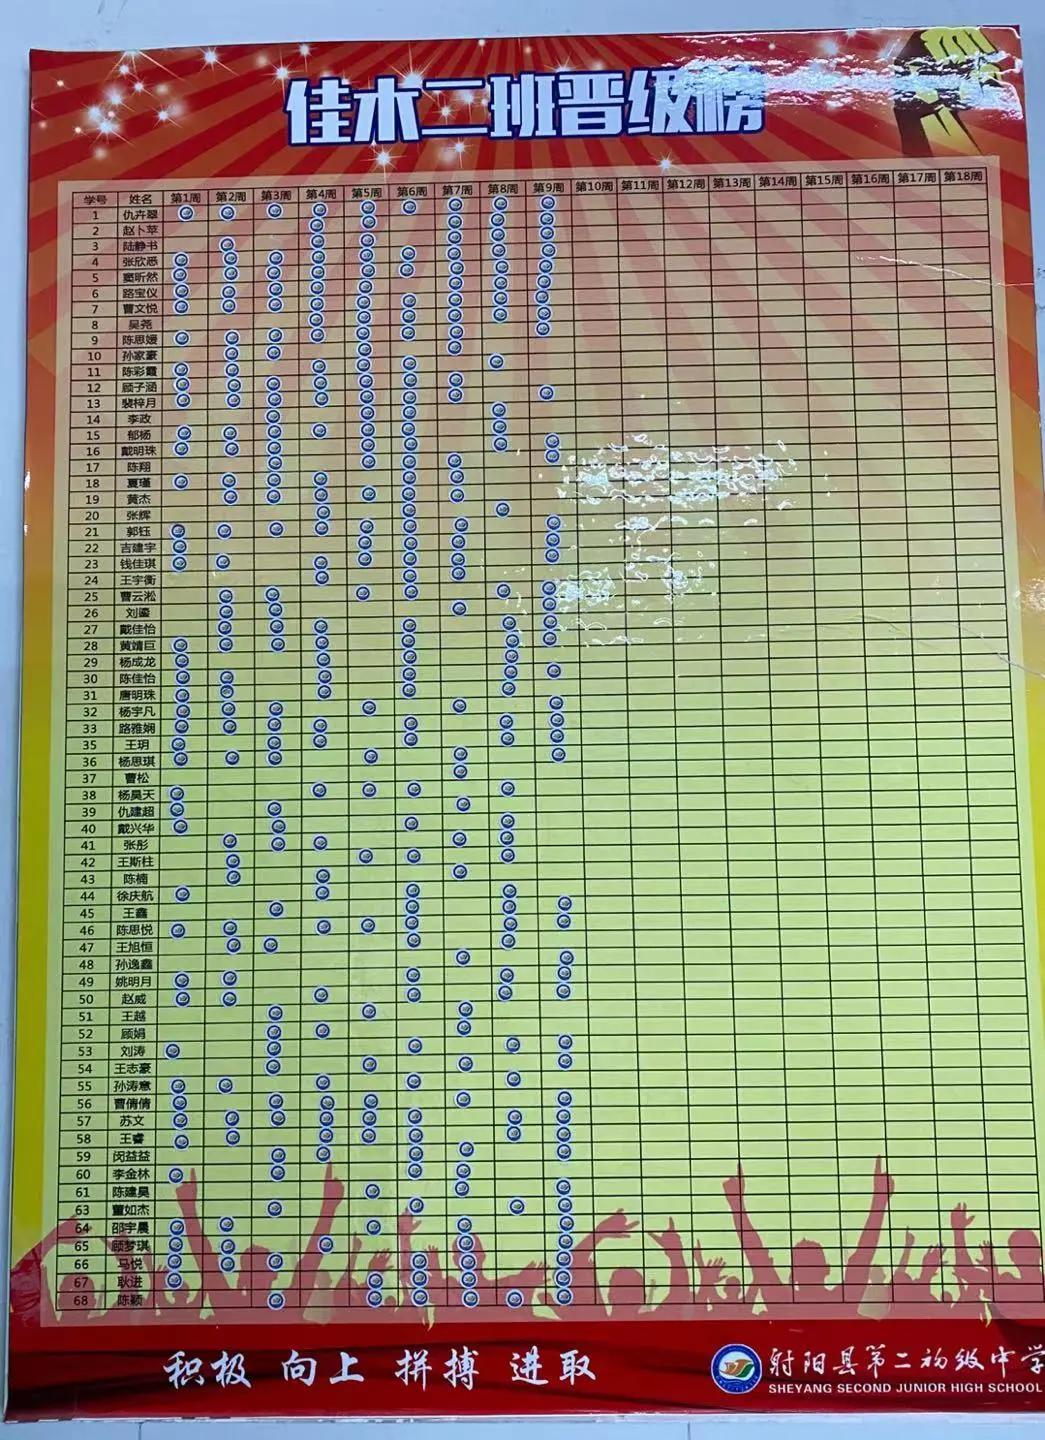 佳木二班晋级榜
学号 姓名 第1周 第2周 第3周 第4周 第5周 第6周 第7周 第8周 第9周 第10周 第11周 第12周 第13周 第14周 第15周 第16周 第17周 第18周
1 仇卉翠
2 赵卜苹
3 陆静书
4 张欣恶
5 窦昕然
6 路宝仪
7 曹文悦
8 吴尧
9 陈思媛
10 孙家豪
11 陈彩霞
12 顾子涵
13 裴梓月
14 李政
15 郁杨
16 戴明珠
17 陈翔
18 夏瑾
19 黄杰
20 张辉
21 郭钰
22 吉建宇
23 钱佳琪
24 王宇衡
25 曹云淞
26 刘鎏
27 戴佳怡
28 黄靖巨
29 杨成龙
30 陈佳怡
31 唐明珠
32 杨宇凡
33 路雅娴
35 王玥
36 杨思琪
37 曹松
38 杨昊天
39 仇建超
40 戴兴华
41 张彤
42 王斯柱
43 陈楠
44 徐庆航
45 王鑫
46 陈思悦
47 王旭恒
48 孙逸鑫
49 姚明月
50 赵威
51 王越
52 顾娟
53 刘涛
54 王志豪
55 孙涛意
56 曹倩倩
57 苏文
58 王睿
59 闵益益
60 李金林
61 陈建昊
63 董如杰
64 邵宇晨
65 顾梦琪
66 马悦
67 耿进
68 陈颖
积极 向上 拼搏 进取
射阳县第二初级中学
SHEYANG SECOND JUNIOR HIGH SCHOOL